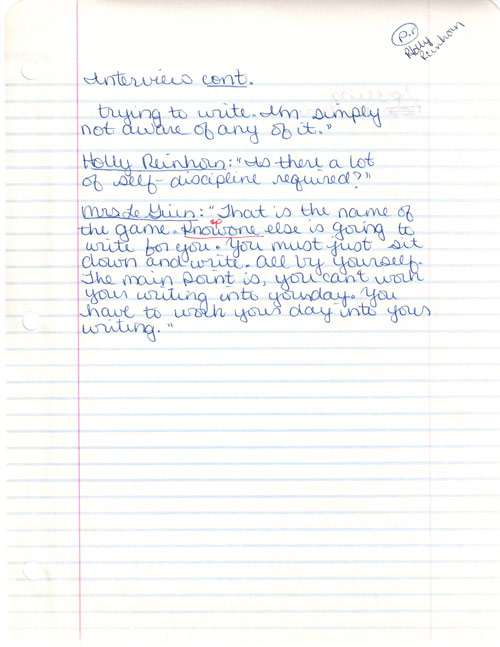 P.1
Holly
Reinhorn
Interview cont.
trying to write. I'm simply
not aware of any of it."
Holly Reinhorn: "Is there a lot
of self-discipline required?"
Mrs Le Guin: "That is the name of
sp
the game. Knowone else is going to
write for you. You must just sit
down and write. All by yourself.
The main point is, you can't work
your writing into your day. You
have to work your day into your
writing."